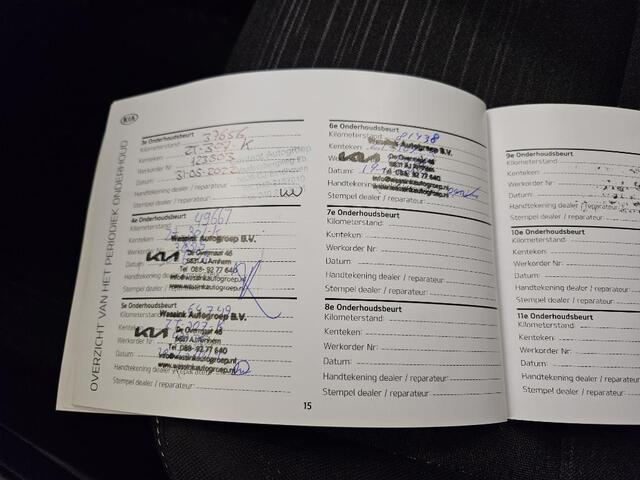 KIA
OVERZICHT VAN HET PERIODIEK ONDERHOUD
3e Onderhoudsbeurt
Kilometerstand: 37656
Kenteken: K
Werkorder Nr: 123503
Datum: 31-05-2022
Handtekening dealer / reparateur:
Stempel dealer / reparateur:
4e Onderhoudsbeurt
Kilometerstand: 49667
Kenteken:
Werkorder Nr:
Datum:
Handtekening dealer
Stempel dealer / reparateur:
Wassink Autogroep B.V.
KIA
De Overmaat 46
6831 AJ Arnhem
Tel 088- 92 77 640
info@wassinkautogroep.nl
www.wassinkautogroep.nl
5e Onderhoudsbeurt
Kilometerstand:
Kenteken:
Werkorder Nr:
Datum:
Handtekening dealer / reparateur:
Stempel dealer / reparateur:
Wassink Autogroep B.V.
KIA
De Overmaat 46
6831 AJ Arnhem
Tel 088- 92 77 640
info@wassinkautogroep.nl
www.wassinkautogroep.nl
6e Onderhoudsbeurt
Kilometerstand: 81438
Kenteken:
Werkorder Nr:
Datum:
Handtekening dealer / reparateur:
Stempel dealer / reparateur:
Wassink Autogroep B.V.
KIA
De Overmaat 46
6831 AJ Arnhem
Tel 088- 92 77 640
info@wassinkautogroep.nl
www.wassinkautogroep.nl
7e Onderhoudsbeurt
Kilometerstand:
Kenteken:
Werkorder Nr:
Datum:
Handtekening dealer / reparateur:
Stempel dealer / reparateur:
8e Onderhoudsbeurt
Kilometerstand:
Kenteken:
Werkorder Nr:
Datum:
Handtekening dealer / reparateur:
Stempel dealer / reparateur:
15
9e Onderhoudsbeurt
Kilometerstand:
Kenteken:
Werkorder Nr:
Datum:
Handtekening dealer / reparateur:
Stempel dealer / reparateur:
10e Onderhoudsbeurt
Kilometerstand:
Kenteken:
Werkorder Nr:
Datum:
Handtekening dealer / reparateur:
Stempel dealer / reparateur:
11e Onderhoudsbeurt
Kilometerstand:
Kenteken:
Werkorder Nr:
Datum:
Handtekening dealer / reparateur:
Stempel dealer / reparateur: